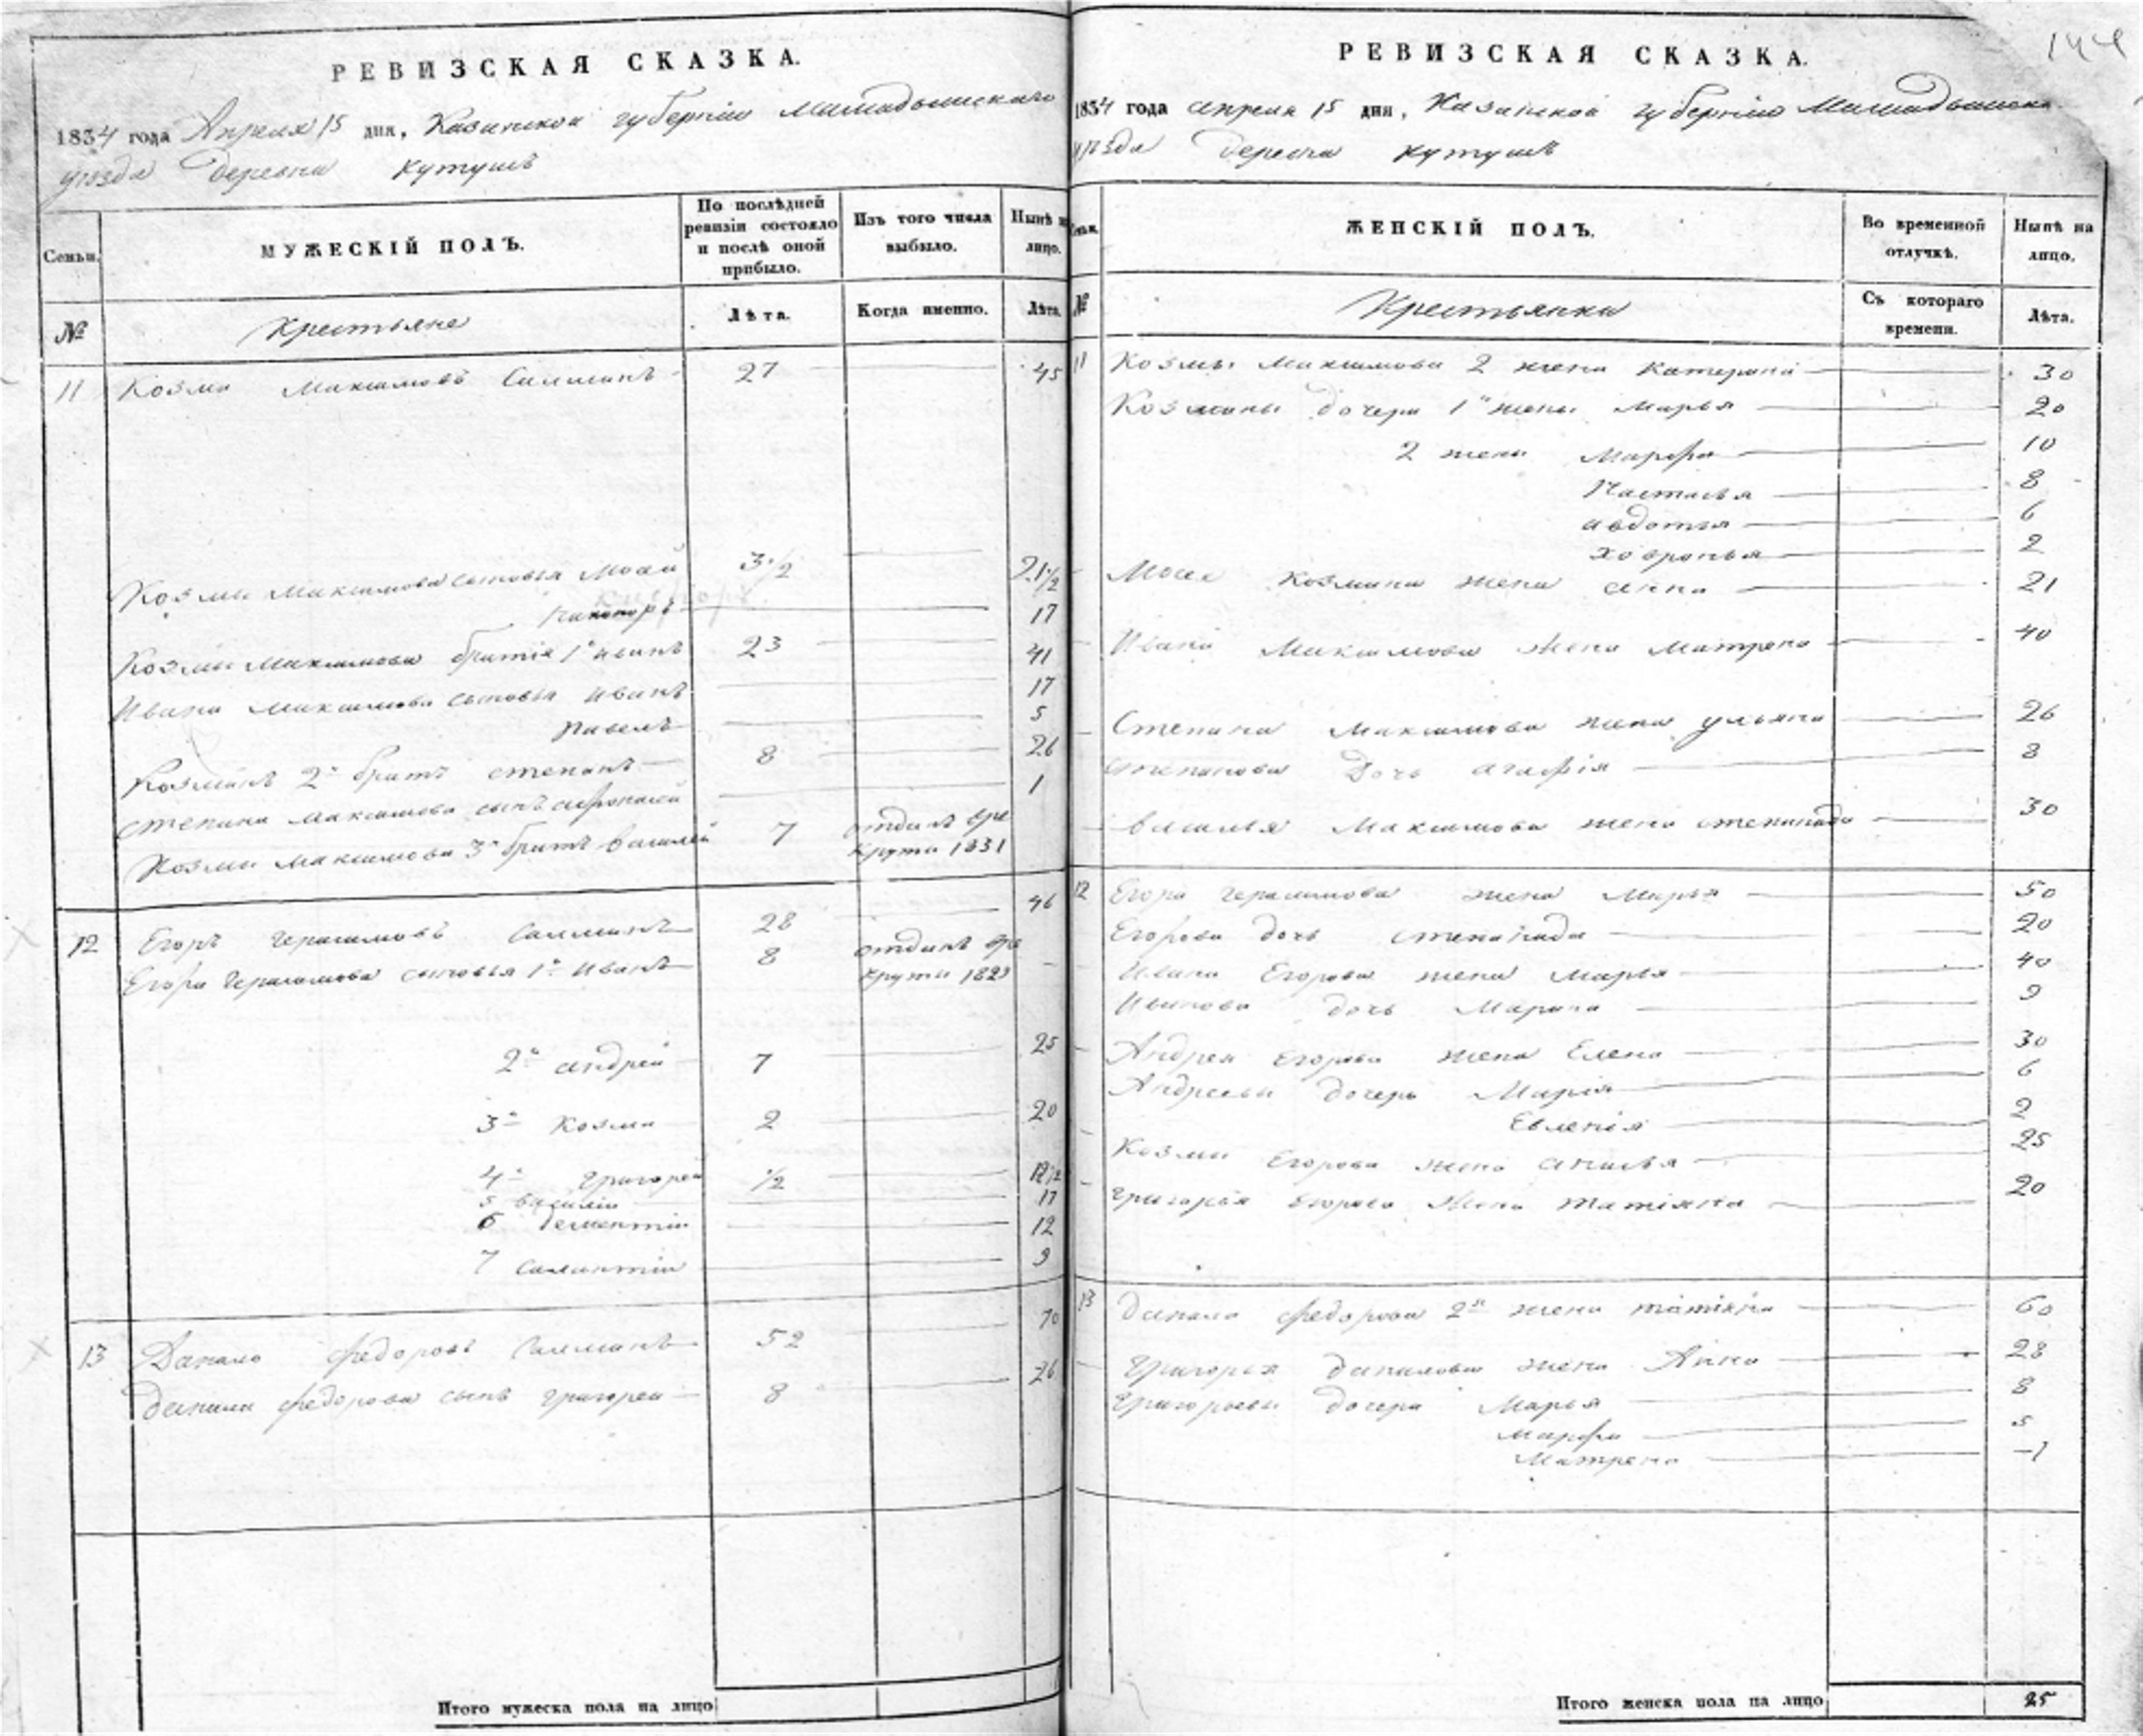 РЕВИЗСКАЯ СКАЗКА.
1834 года Апреля 15 дня, Казанской губернии Мамадышскаго
уезда Деревни Кутушъ
Семьи.
МУЖЕСКІЙ ПОЛЪ.
По послѣдней ревизіи состояло и послѣ оной прибыло.
Изъ того числа выбыло.
Нынѣ на лицо.
№
Крестьяне
Лѣта.
Когда именно.
Лѣта.
11 Козма Максимовъ 27 45
Козмы Максимова сыновья Мосей 3 1/2 21 1/2
Никаноръ 17
Козмы Максимова братья 1й Иванъ 23 41
Ивана Максимова сыновья Иванъ 17
Павелъ 5
Козминъ 2й братъ Степанъ 8 26
Степана Максимова сынъ 1
Козмы Максимова 3й братъ Василей 7 отданъ вре
круты 1831
12 Егоръ Герасимовъ 28 46
Егора Герасимова сыновья 1й Иванъ 8 отданъ вре
круты 1823
2й Андрей 7 25
3й Козма 2 20
4й Григорей 1/2 18 1/2
5 Василіи 17
6 Дементіи 12
7 9
13 Данило Федоровъ 52 70
Данила Федорова сынъ Григореи 8 26
Итого мужеска пола на лицо
РЕВИЗСКАЯ СКАЗКА.
144
1834 года апреля 15 дня, Казанской губернии Мамадышска
уезда Деревни Кутушъ
Семьи.
ЖЕНСКІЙ ПОЛЪ.
Во временной отлучкѣ.
Нынѣ на лицо.
№
Крестьянки
Съ котораго времени.
Лѣта.
11 Козмы Максимова 2 жена Катерина 30
Козмины дочери 1й жены Марья 20
2 жены Марфа 10
Настасья 8
Авдотья 6
Ховронья 2
Мосея Козмина жена Анна 21
Ивана Максимова жена Матрена 40
Степана Максимова жена Ульяна 26
Степанова Дочь Агафія 8
Василья Максимова жена Степанида 30
12 Егора Герасимова жена Марья 50
Егорова дочь Степанида 20
Ивана Егорова жена Марья 40
Иванова дочь Марина 9
Андрея Егорова жена Елена 30
Андреевы дочери Марія 6
Евленія 2
Козмы Егорова жена Анисья 25
Григорья Егорова жена Татіяна 20
13 Данила Федорова 2я жена Татіяна 60
Григорья Данилова жена Анна 28
Григорьевы дочери Марья 8
Марфа 5
Матрена 1
Итого женска пола на лицо 25